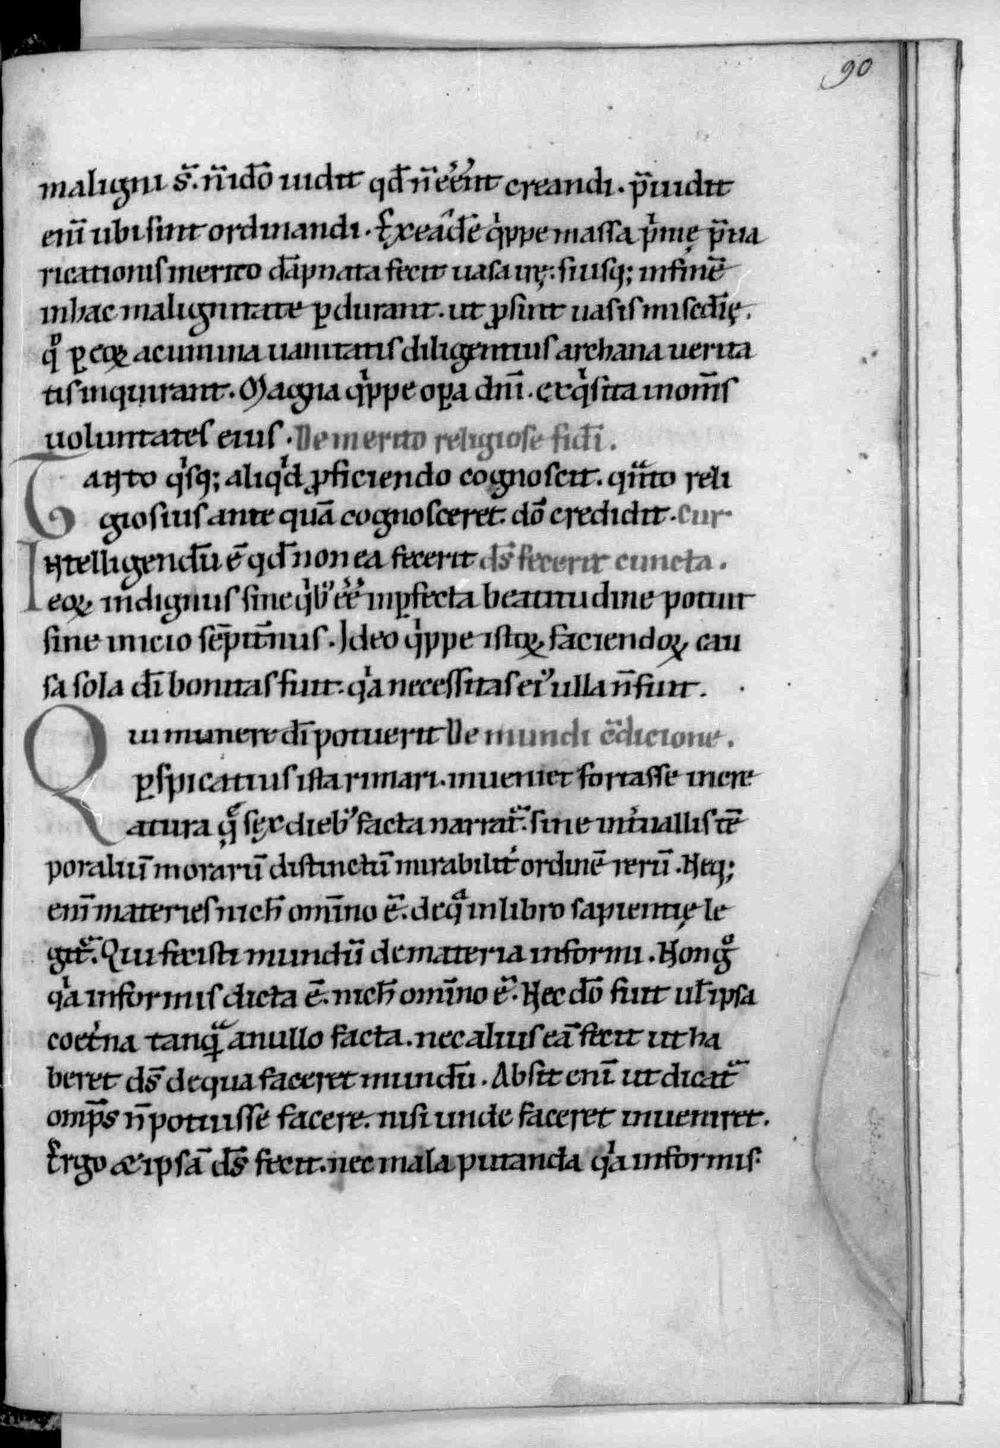 90
maligni s̄. n̄ idō uidit qd̄ n̄ eēnt creandi. p̄uidit
enī ubi sint ordinandi. Ex eadē qippe massa pⁱmę p̄ua
ricationis merito dāpnata fecit uasa irę: siusq; in finē
in hac malignitate ꝑdurant. ut ꝓsint uasis misc̄dię.
qͦ ꝑ eoꝝ acumina uanitatis diligentius archana uerita
tis inquirant. Magna qⁱppe oꝑa dnī. exqⁱsita in om̄s
uoluntates eius. De merito religiose fidī.
Tanto qⁱsq; aliqⁱd ꝓficiendo cognoscit. qͣnto reli
giosius ante quā cognosceret. dō credidit. Cur
Intelligendū ē qd̄ non ea fecerit ds̄ fecerit cuncta.
eoꝝ indignus sine qⁱbꝰ eē̄ inꝑfecta beatitudine potuit
sine inicio sēpitn̄us. Ideo qⁱppe istoꝝ faciendoꝝ cau
sa sola dī bonitas fuit. qⁱa necessitas eiꝰ ulla n̄ fuit.
Qui munere dī potuerit De mundi cōdicione.
ꝑspicatius ista rimari. inueniet fortasse in cre
atura q̨ͤ sex diebꝰ facta narratͬ. sine interuallis tē
poraliū morarū distinctū mirabilit̄ ordinē rerū. Neq;
enī materies nich̄ omīno ē. de qͣ in libro sapientię le
gitͬ. Qui fecisti mundū de materia informi. Non gͦ
qⁱa informis dicta ē. nich̄ omīno ē. Nec dō fuit ul̄ ipsa
coet̄na tanqͣ̄ a nullo facta. nec alius eā fecit ut ha
beret ds̄ de qua faceret mundū. Absit enī ut dicatͬ
omp̄s n̄ potuisse facere. nisi unde faceret inueniret.
Ergo & ipsā ds̄ fecit. nec mala putanda qⁱa informis.